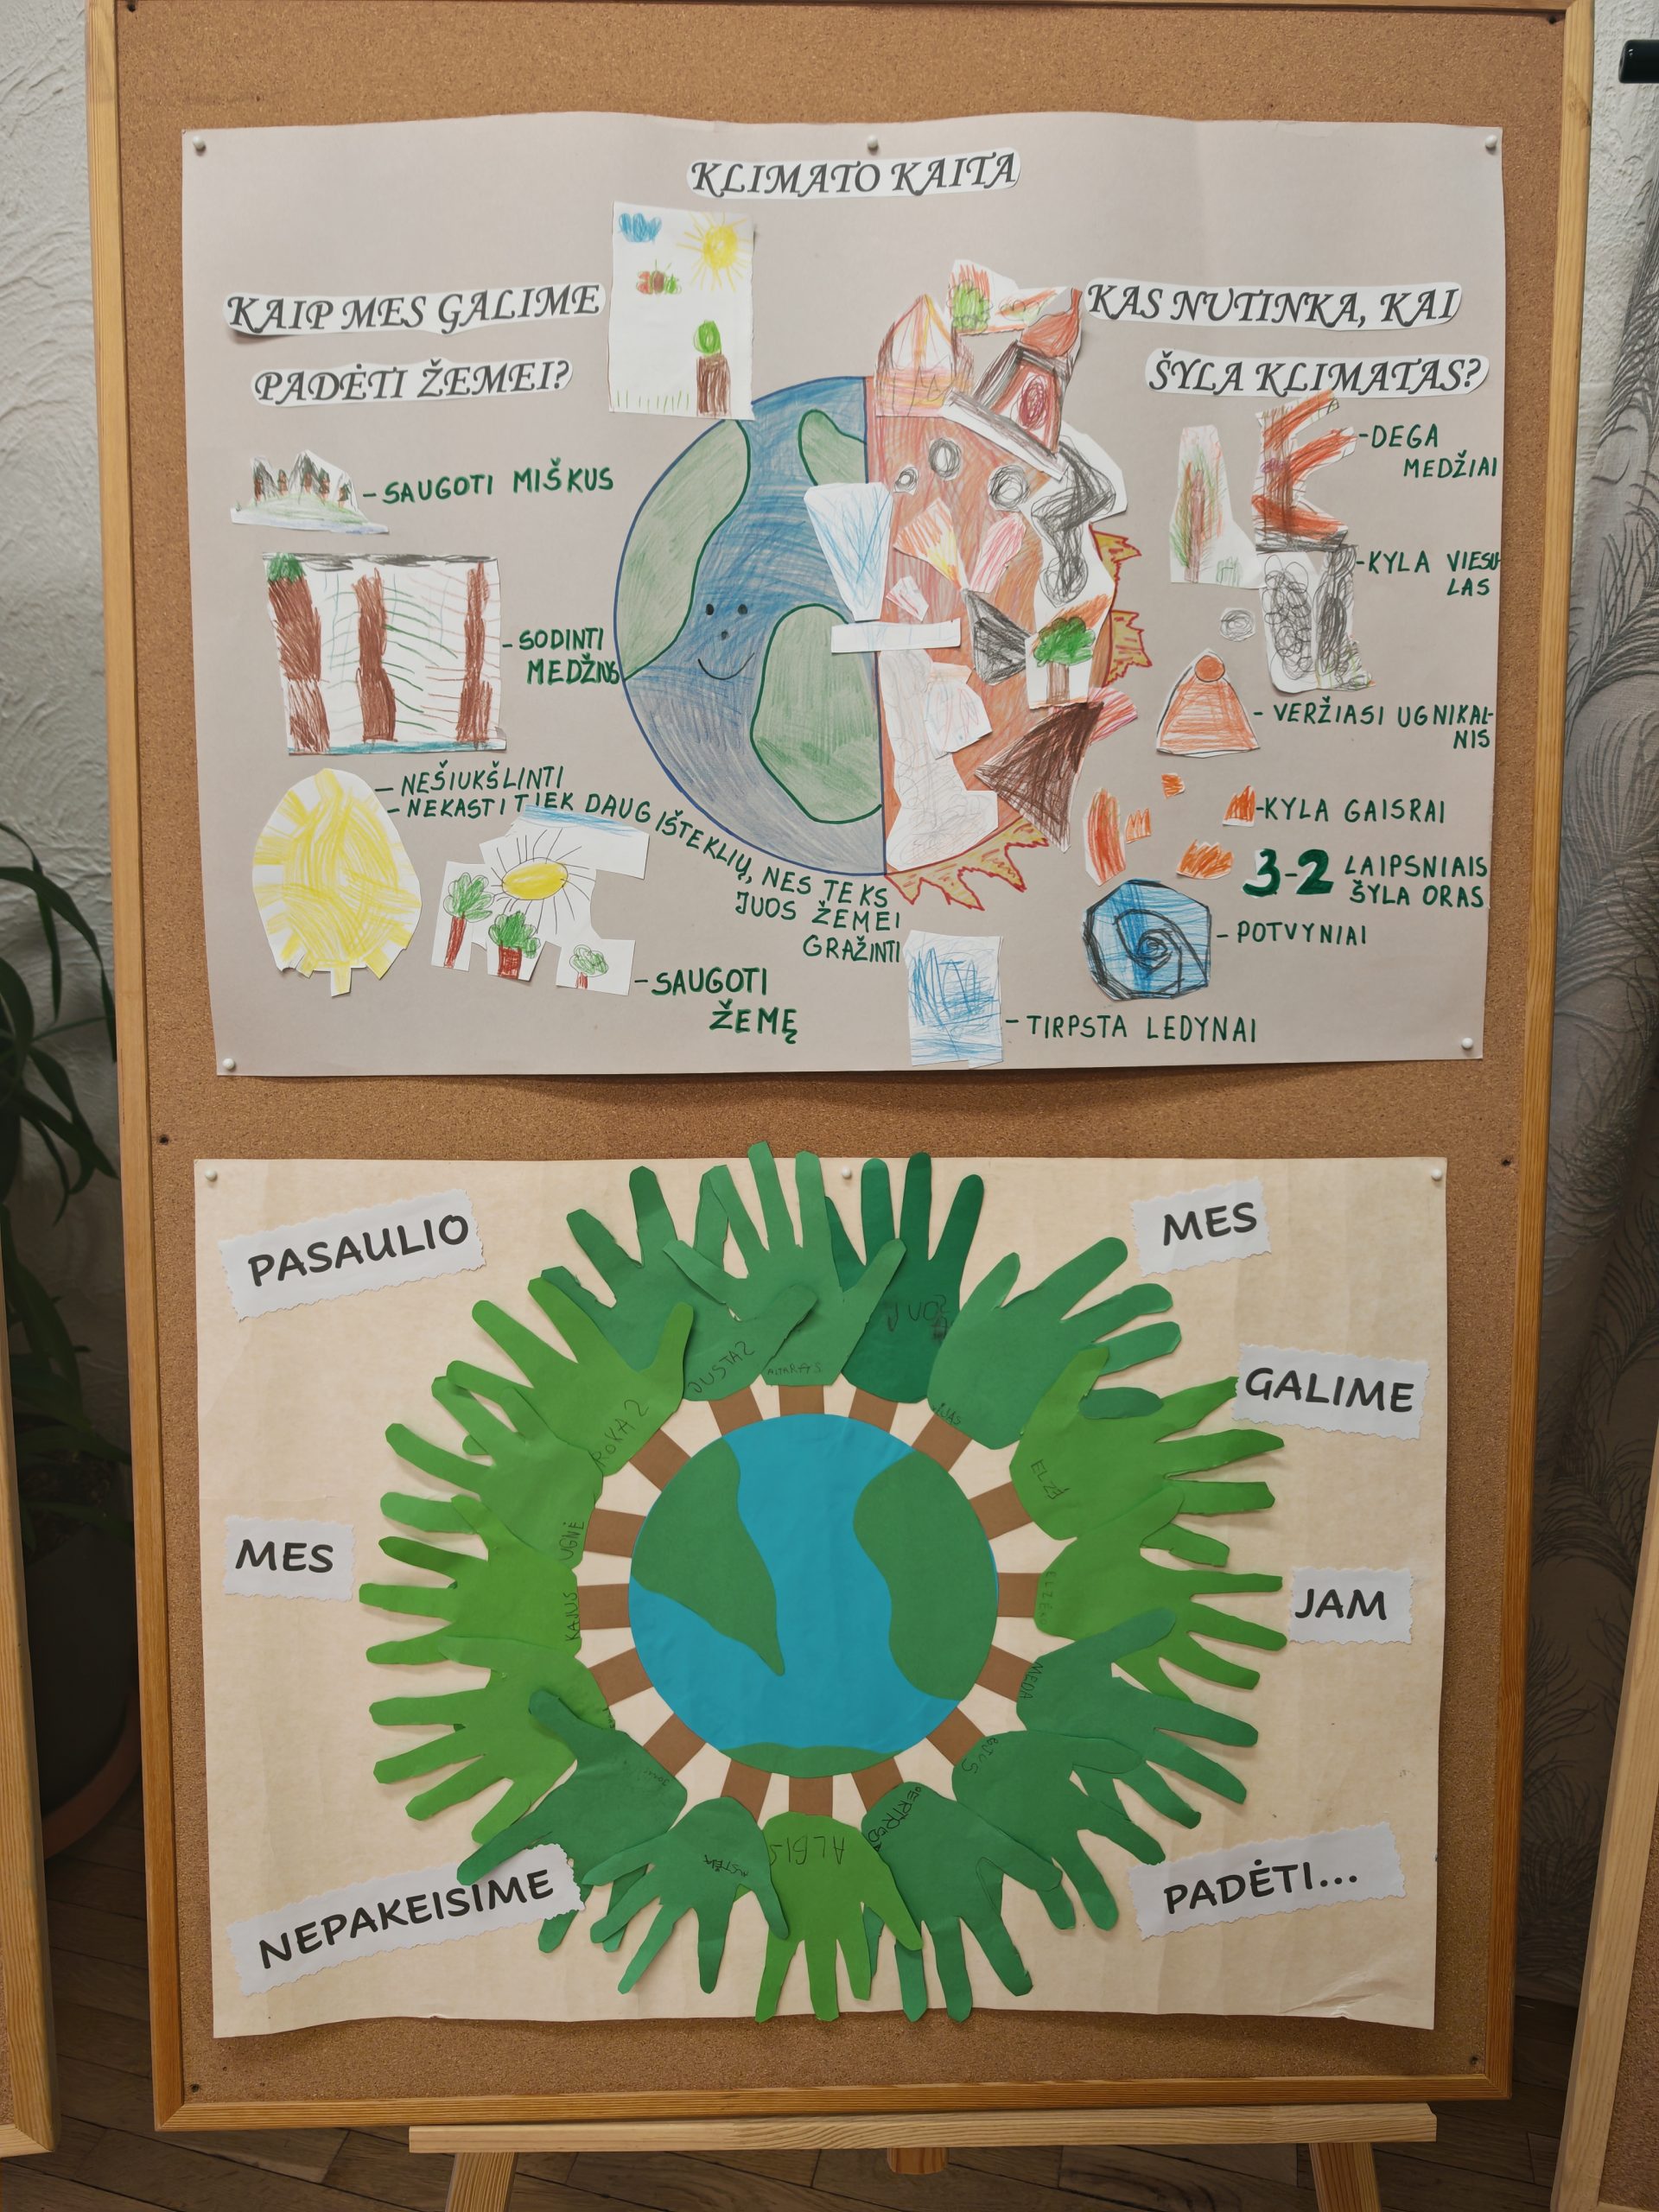 KLIMATO KAITA
KAIP MES GALIME
PADĖTI ŽEMEI?
-SAUGOTI MIŠKUS
-SODINTI
MEDŽIUS
-NEŠIUKŠLINTI
-NEKASTI TIEK DAUG IŠTEKLIŲ, NES TEKS
JUOS ŽEMEI
GRAŽINTI
-SAUGOTI
ŽEMĘ
KAS NUTINKA, KAI
ŠYLA KLIMATAS?
-DEGA
MEDŽIAI
-KYLA VIESU-
LAS
-VERŽIASI UGNIKAL-
NIS
-KYLA GAISRAI
3-2 LAIPSNIAIS
ŠYLA ORAS
-POTVYNIAI
-TIRPSTA LEDYNAI
PASAULIO
MES
NEPAKEISIME
MES
GALIME
JAM
PADĖTI...
JUSTAS
ROKAS
UGNĖ
KAJUS
ELZĖ
MEDA
ALBIS